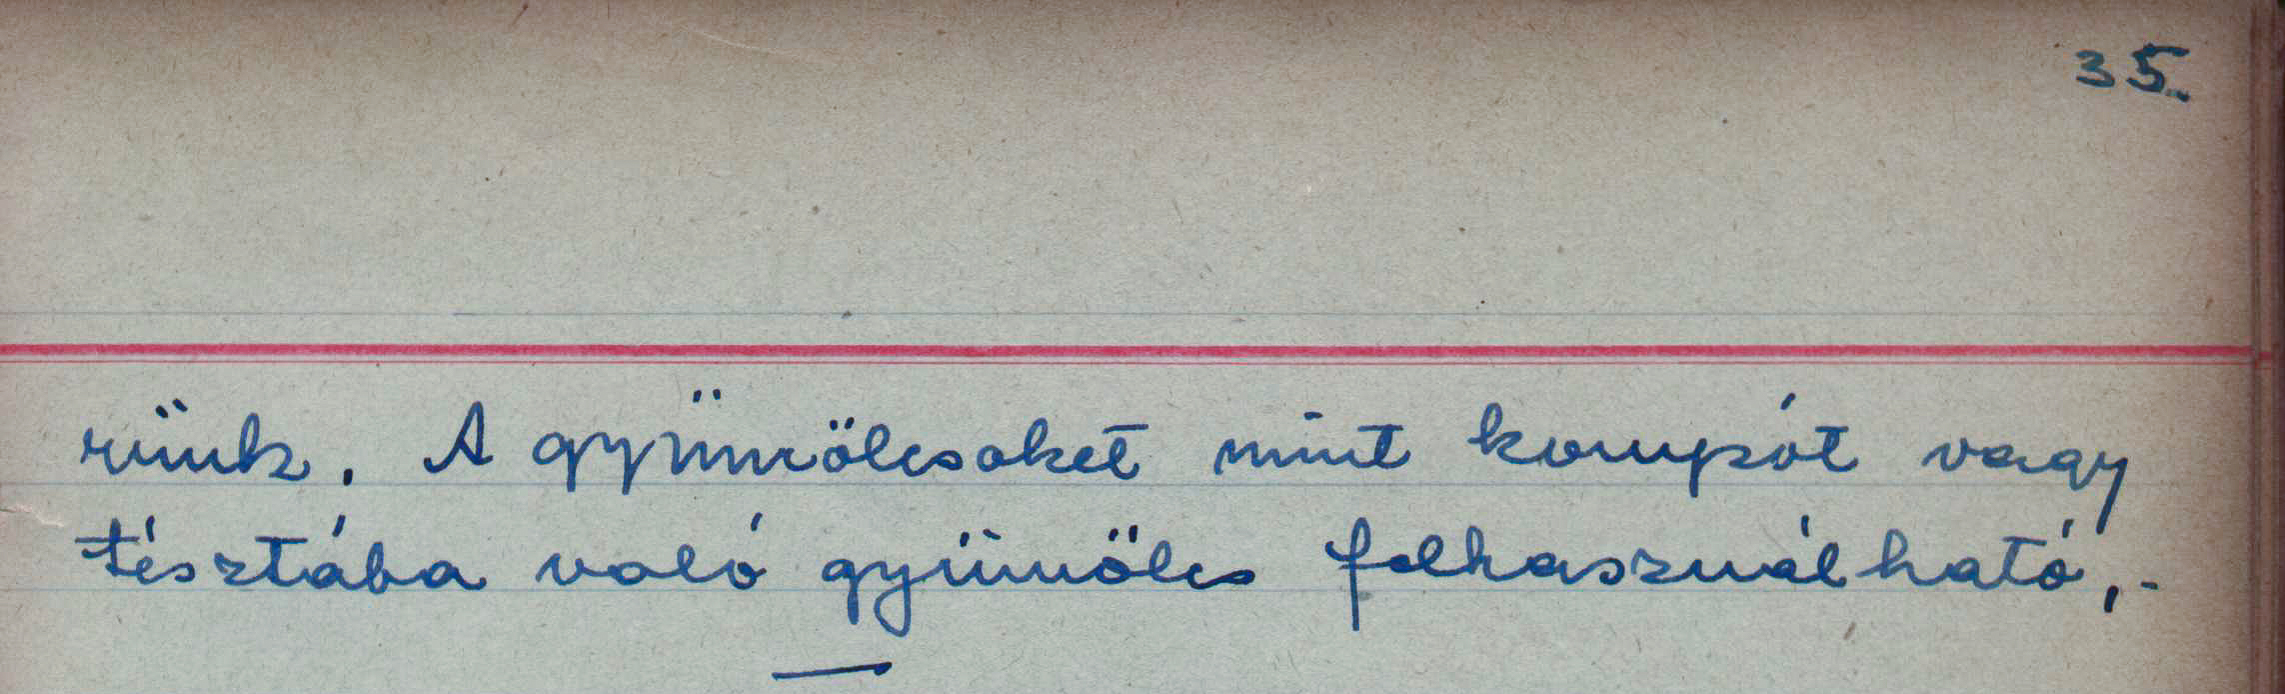 35.
rünk. A gyümölcsöket mint kompót vagy
tésztába való gyümölcs felhasználható,.-